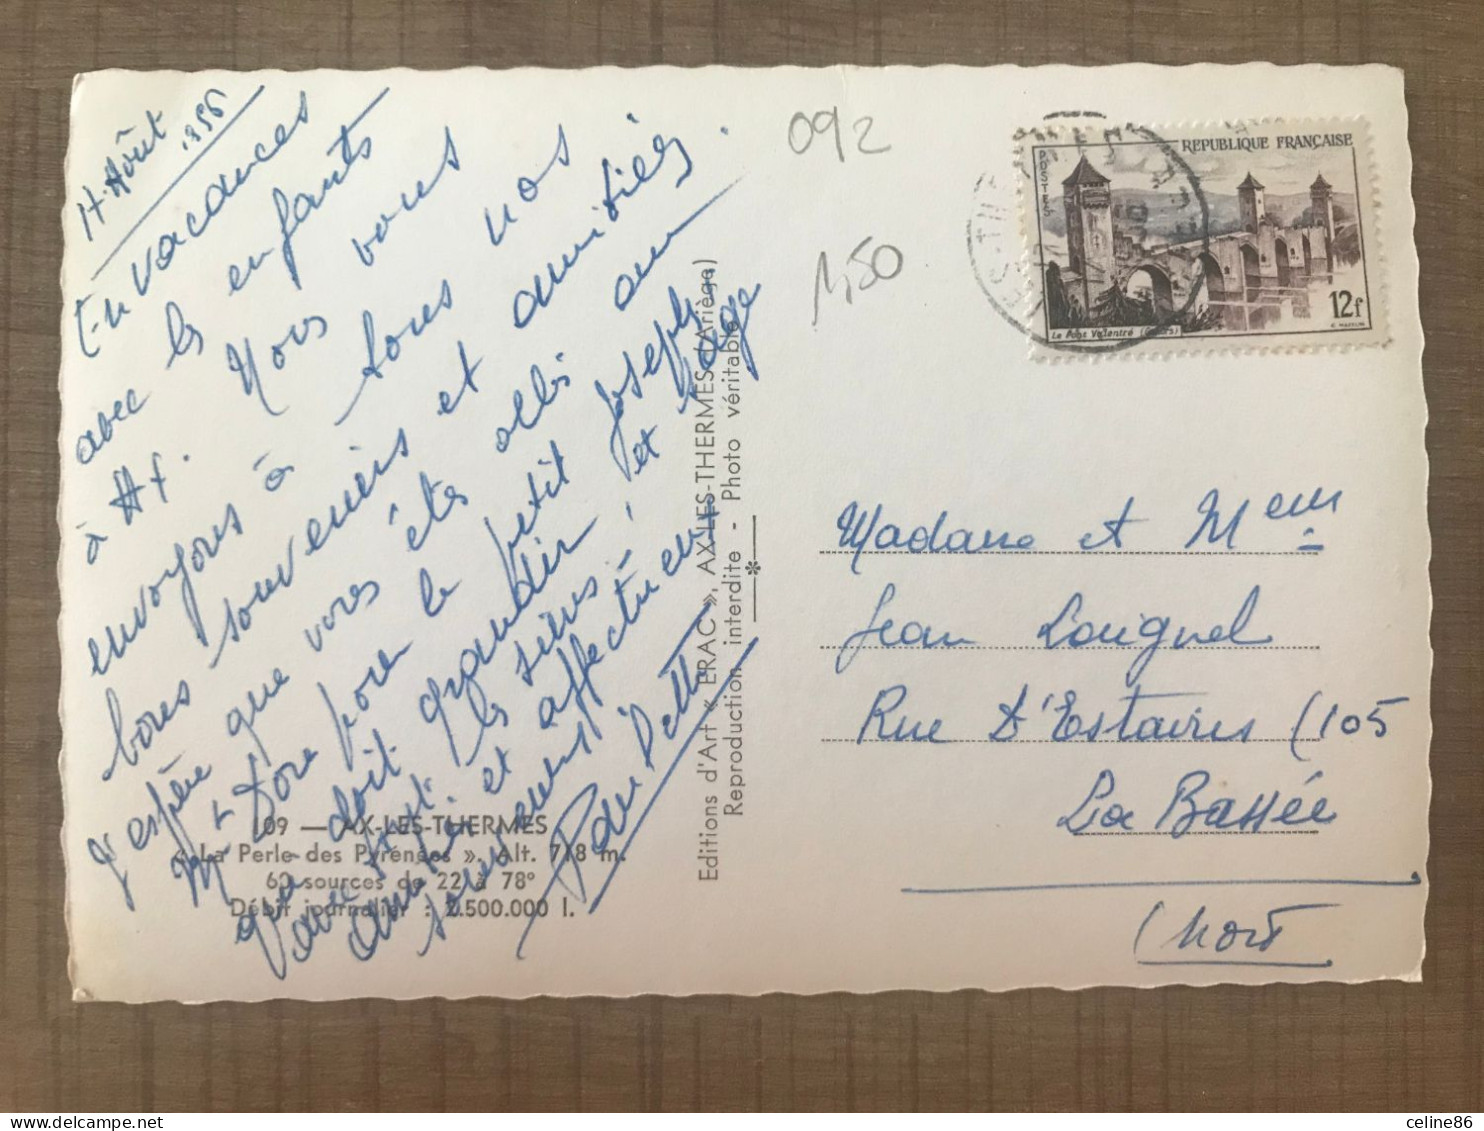 Août 1956
En vacances
avec les enfants
à Ax. Nous vous
envoyons à tous nos
bons souvenirs et amitiés.
J'espère que vous êtes allés au
Mt Dore pour le petit Joseph
qui doit grandir, et
avec les siens!
et affectueux
souvenirs
109 — AX-LES-THERMES
« La Perle des Pyrénées ». Alt. 718 m.
60 sources de 22 à 78°
Débit journalier : 2.500.000 l.
Editions d'Art « ERAC », AX-LES-THERMES (Ariège)
Reproduction interdite - Photo véritable
092
1,50
REPUBLIQUE FRANÇAISE
POSTES
12f
Le Pont Valentré (Cahors)
Madame et Mr
Jean
Rue D'Estaires (105
La Bassée
(Nord
celine86